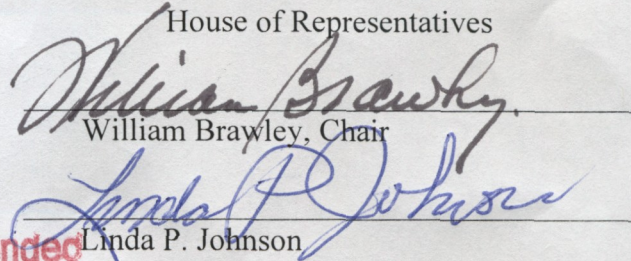 House of Representatives
William Brawley.
William Brawley, Chair
Linda P Johnson
nded
Linda P. Johnson